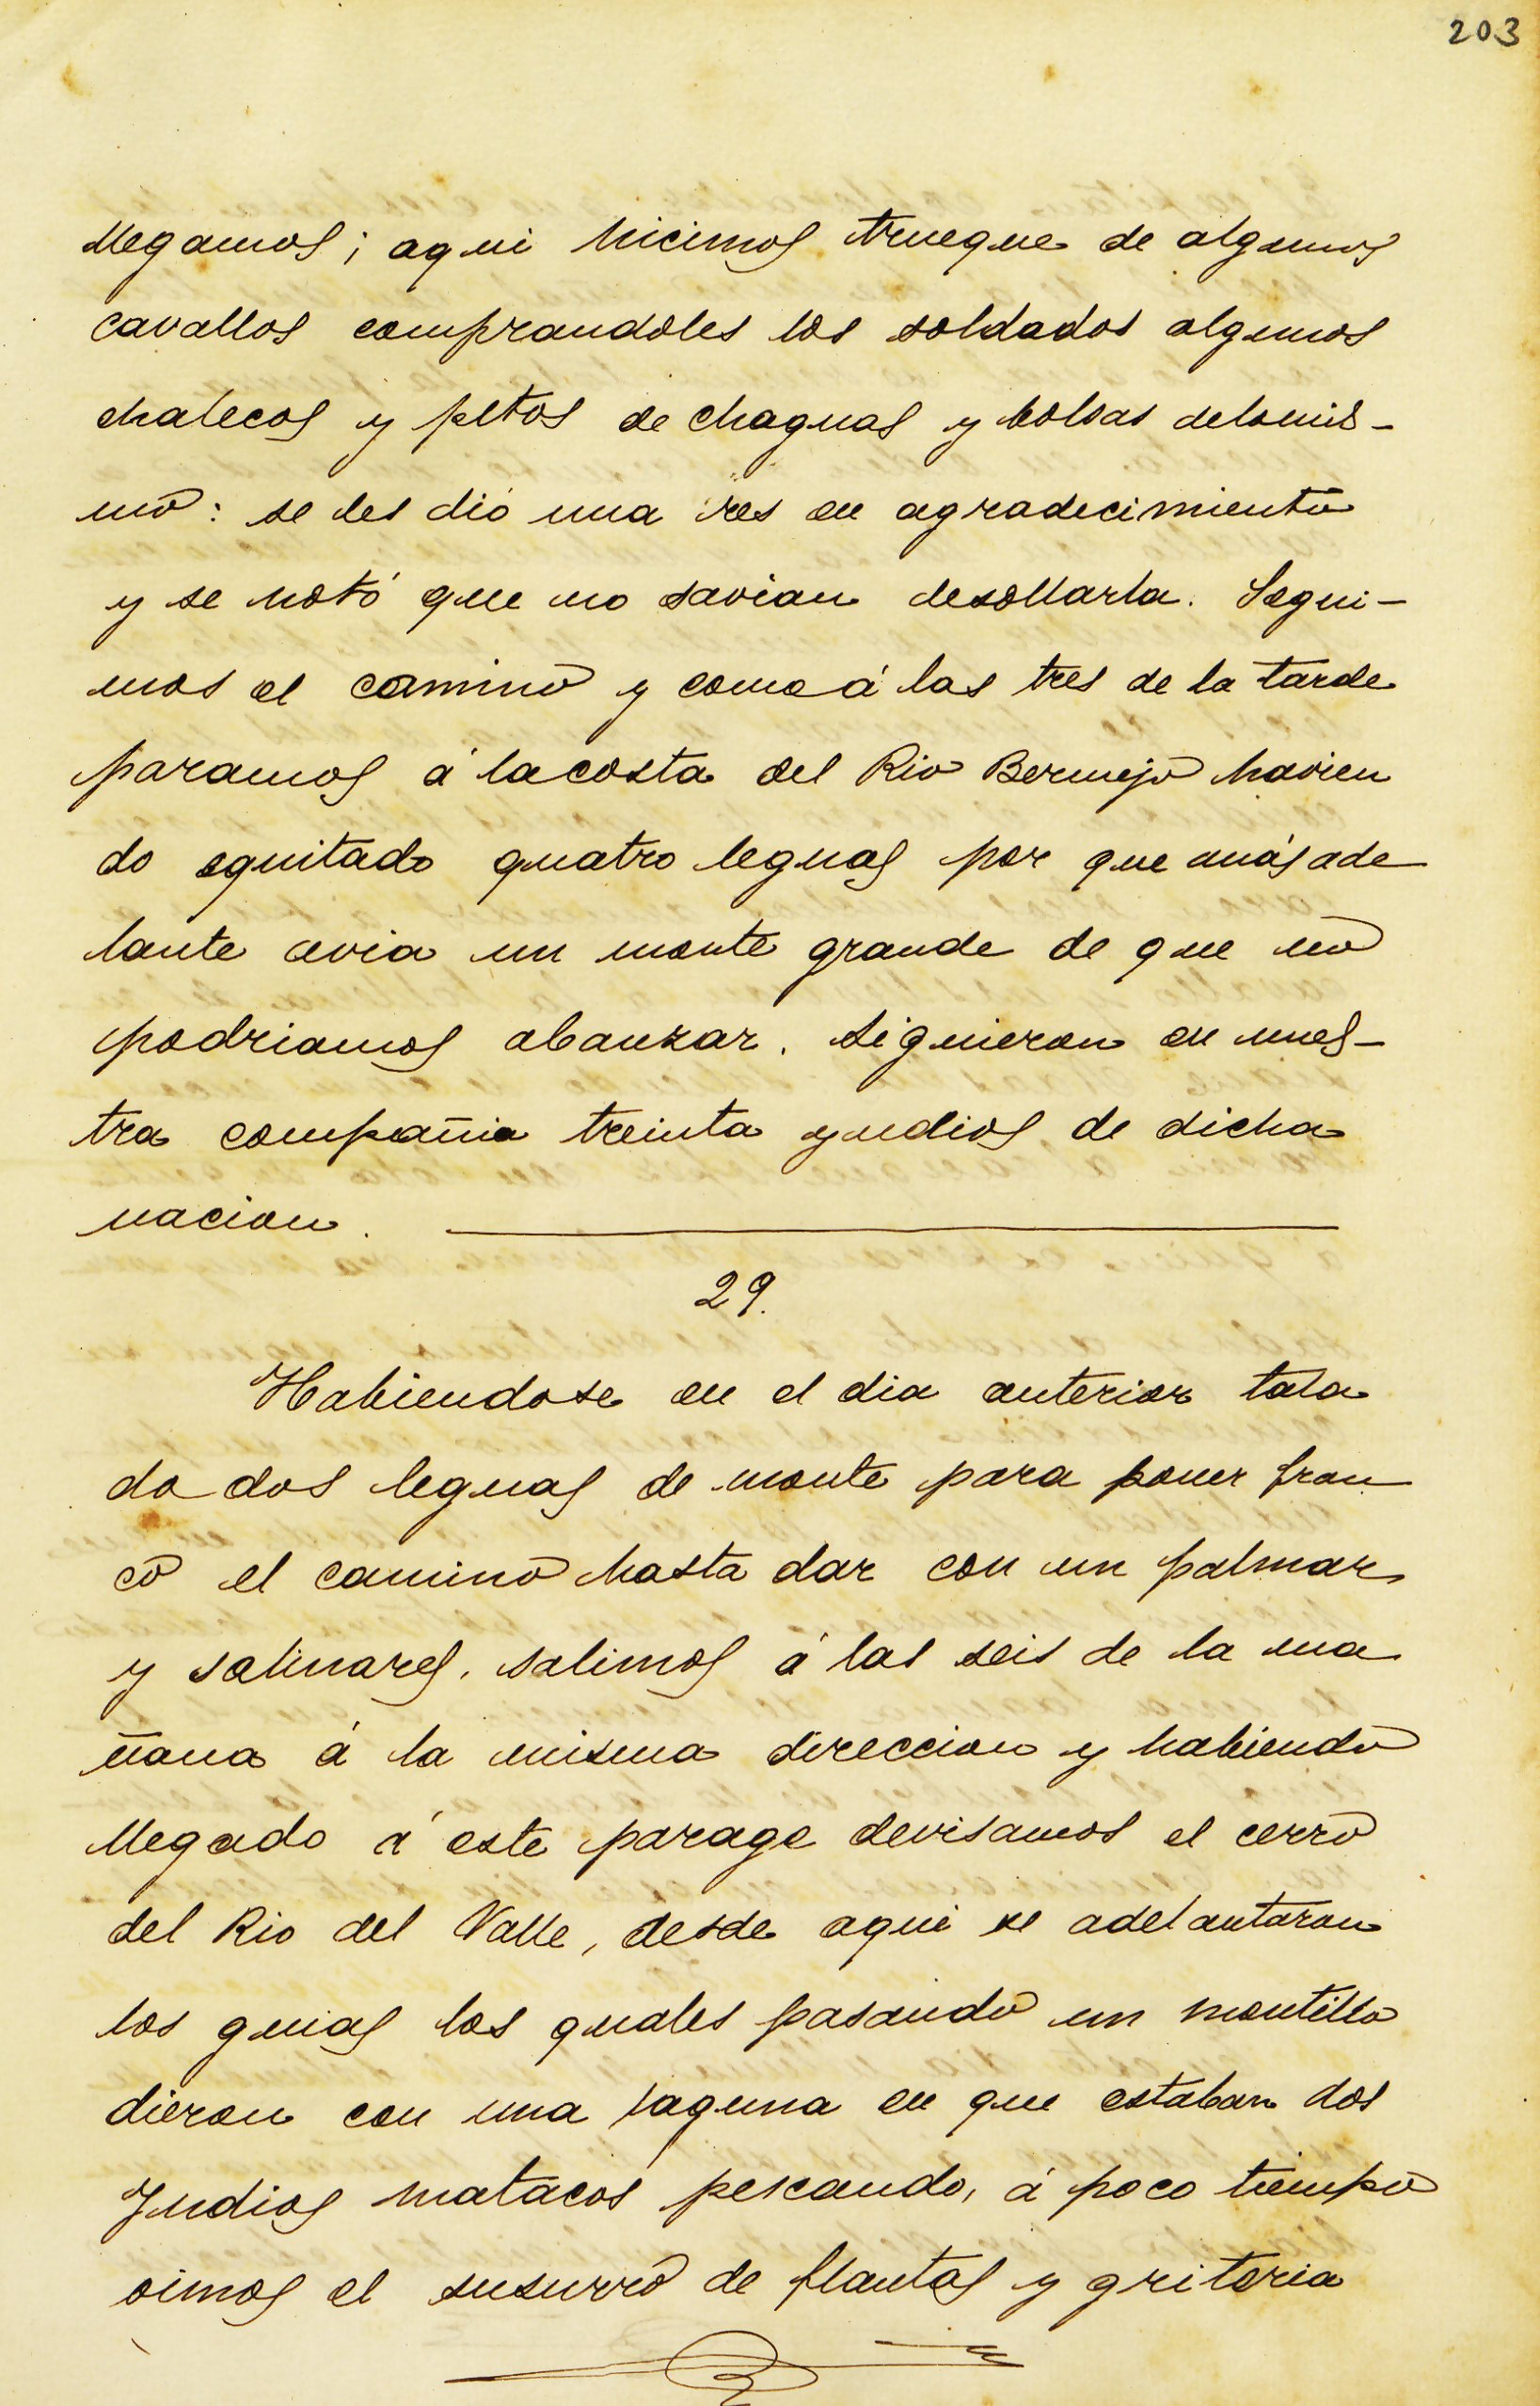 203
llegamos; aqui hicimos trueque de algunos
cavallos comprandoles los soldados algunos
chalecos y petos de chaguas y bolsas delomis-
mo: se les dió una res en agradecimiento
y se notó que no savian desollarla. Segui-
mos el camino y como á las tres de la tarde
paramos á la costa del Rio Bermejo havien
do aguitado quatro leguas por que más ade
lante avia un monte grande de que no
podriamos abanzar. Siguieron en nues-
tra compañia treinta yndios de dicha
nacion.
29.
Habiendose en el dia anterior tala
do dos leguas de monte para poner fran
co el camino hasta dar con un palmar
y salinares, salimos á las seis de la ma
ñana á la misma direccion y habiendo
llegado á este parage devisamos el cerro
del Rio del Valle, desde aqui se adelantaron
los guias los quales pasando un montillo
dieron con una laguna en que estaban dos
Yndios matacos pescando, á poco tiempo
oimos el susurro de flautas y griteria